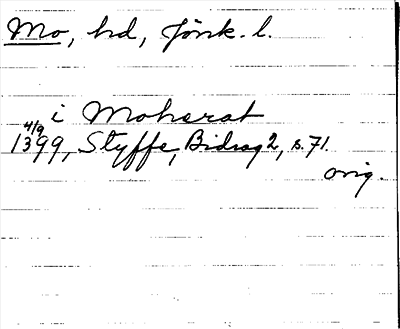 Mo, hd, Jönk. l.
i Moherat
4/9
1399, Styffe, Bidrag 2, s. 71.
orig.